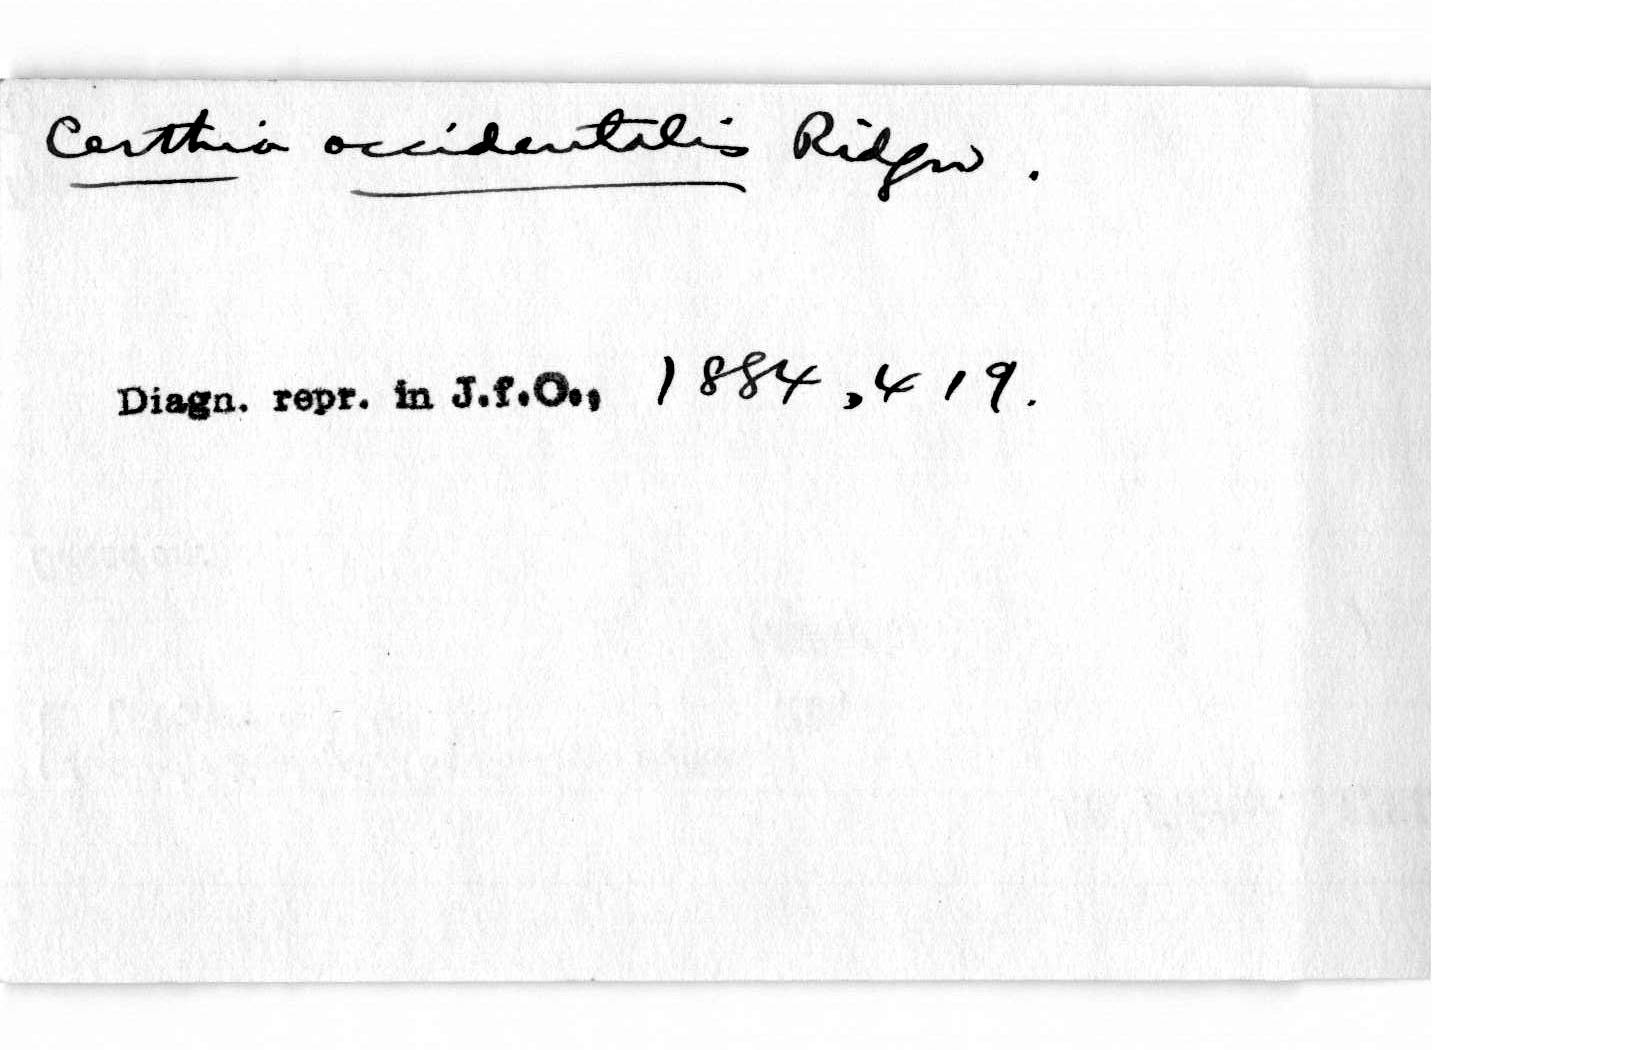 Certhia occidentalis Ridgw.
Diagn. repr. in J.f.O., 1884, 419.